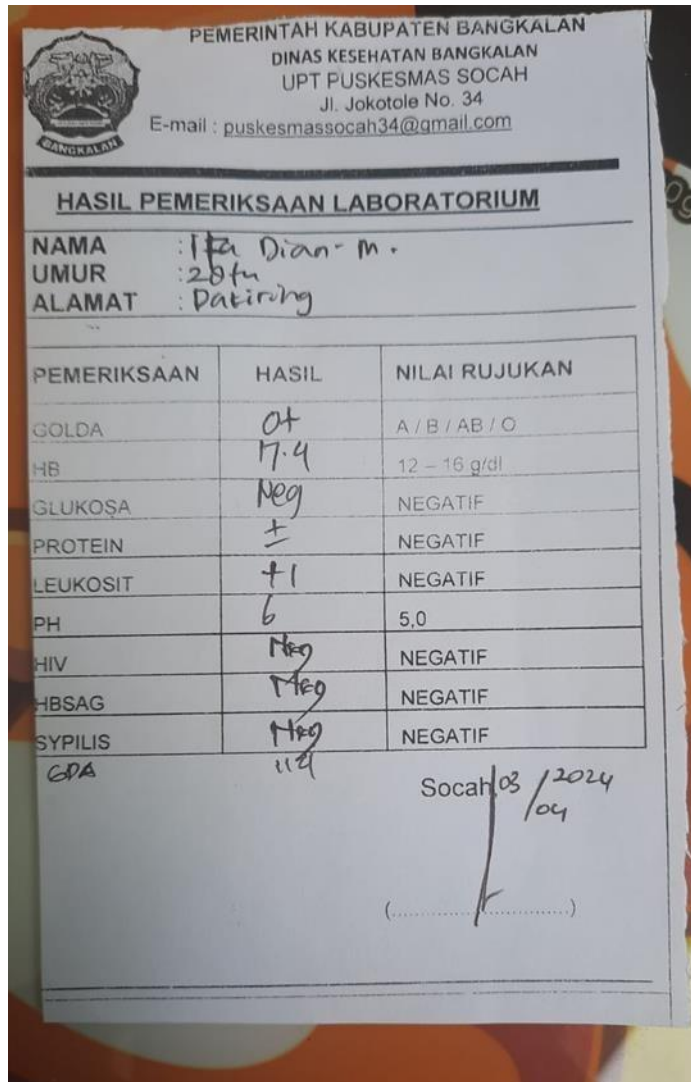 PEMERINTAH KABUPATEN BANGKALAN
DINAS KESEHATAN BANGKALAN
UPT PUSKESMAS SOCAH
Jl. Jokotole No. 34
E-mail : puskesmassocah34@gmail.com
BANGKALAN
HASIL PEMERIKSAAN LABORATORIUM
NAMA : Ita Dian M.
UMUR : 28 tn
ALAMAT : Dakiring
PEMERIKSAAN HASIL NILAI RUJUKAN
GOLDA O+ A / B / AB / O
HB 12 – 16 g/dl
GLUKOSA Neg NEGATIF
PROTEIN ± NEGATIF
LEUKOSIT +1 NEGATIF
PH 6 5,0
HIV Neg NEGATIF
HBSAG Neg NEGATIF
SYPILIS Neg NEGATIF
GDA 114
Socah, 03/04 2024
(..............................)